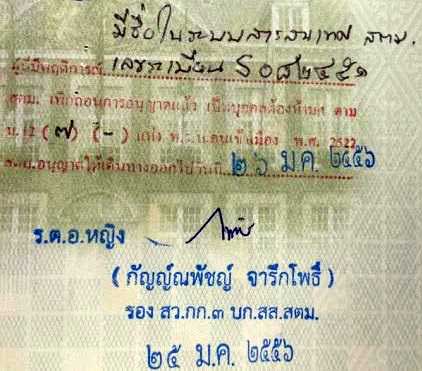 มีชื่อในระบบสารสนเทศ สตม.
ผู้มีพฤติการณ์ เลขระเบียน S ๐๘๒๔๕๑
สตม. เพิกถอนการอนุญาตแล้ว เป็นบุคคลต้องห้ามฯ ตาม
ม.12 (๗) (-) แห่ง พ.ร.บ.คนเข้าเมือง พ.ศ. 2522
อนุญาตให้เดินทางออกไปวันที่ ๒๖ ม.ค. ๒๕๕๖
ร.ต.อ.หญิง
( กัญญ์ณพัชญ์ จารึกโพธิ์ )
รอง สว.กก.๓ บก.สส.สตม.
๒๕ ม.ค. ๒๕๕๖